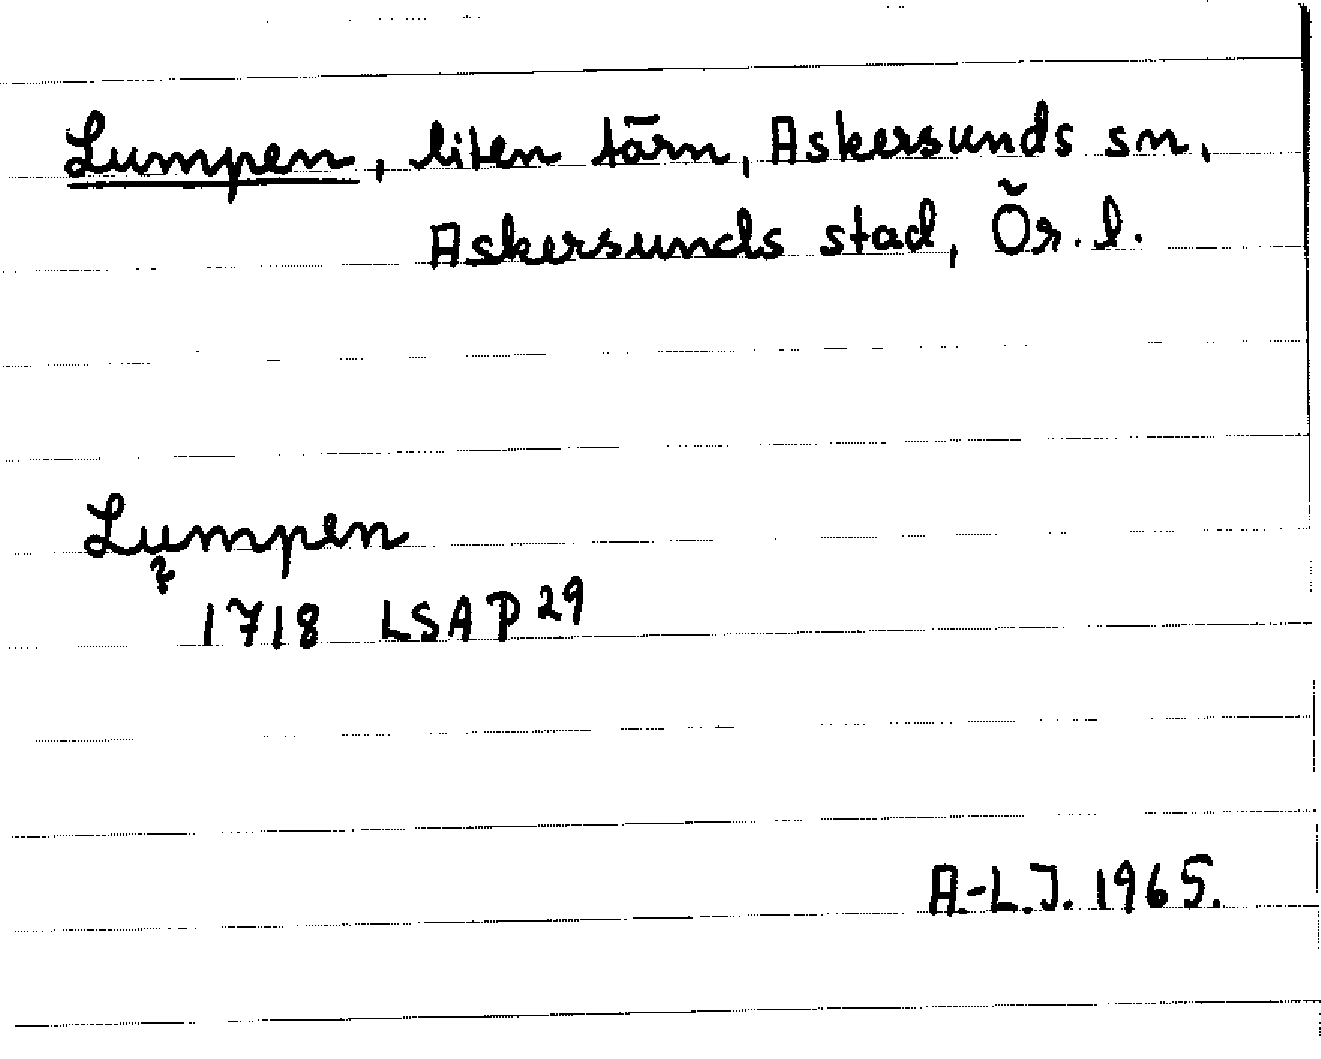 Lumpen, liten tärn, Askersunds sn,
Askersunds stad, Ör. l.
Lumpen
?
1718 LSAP 29
A.-L.J. 1965.